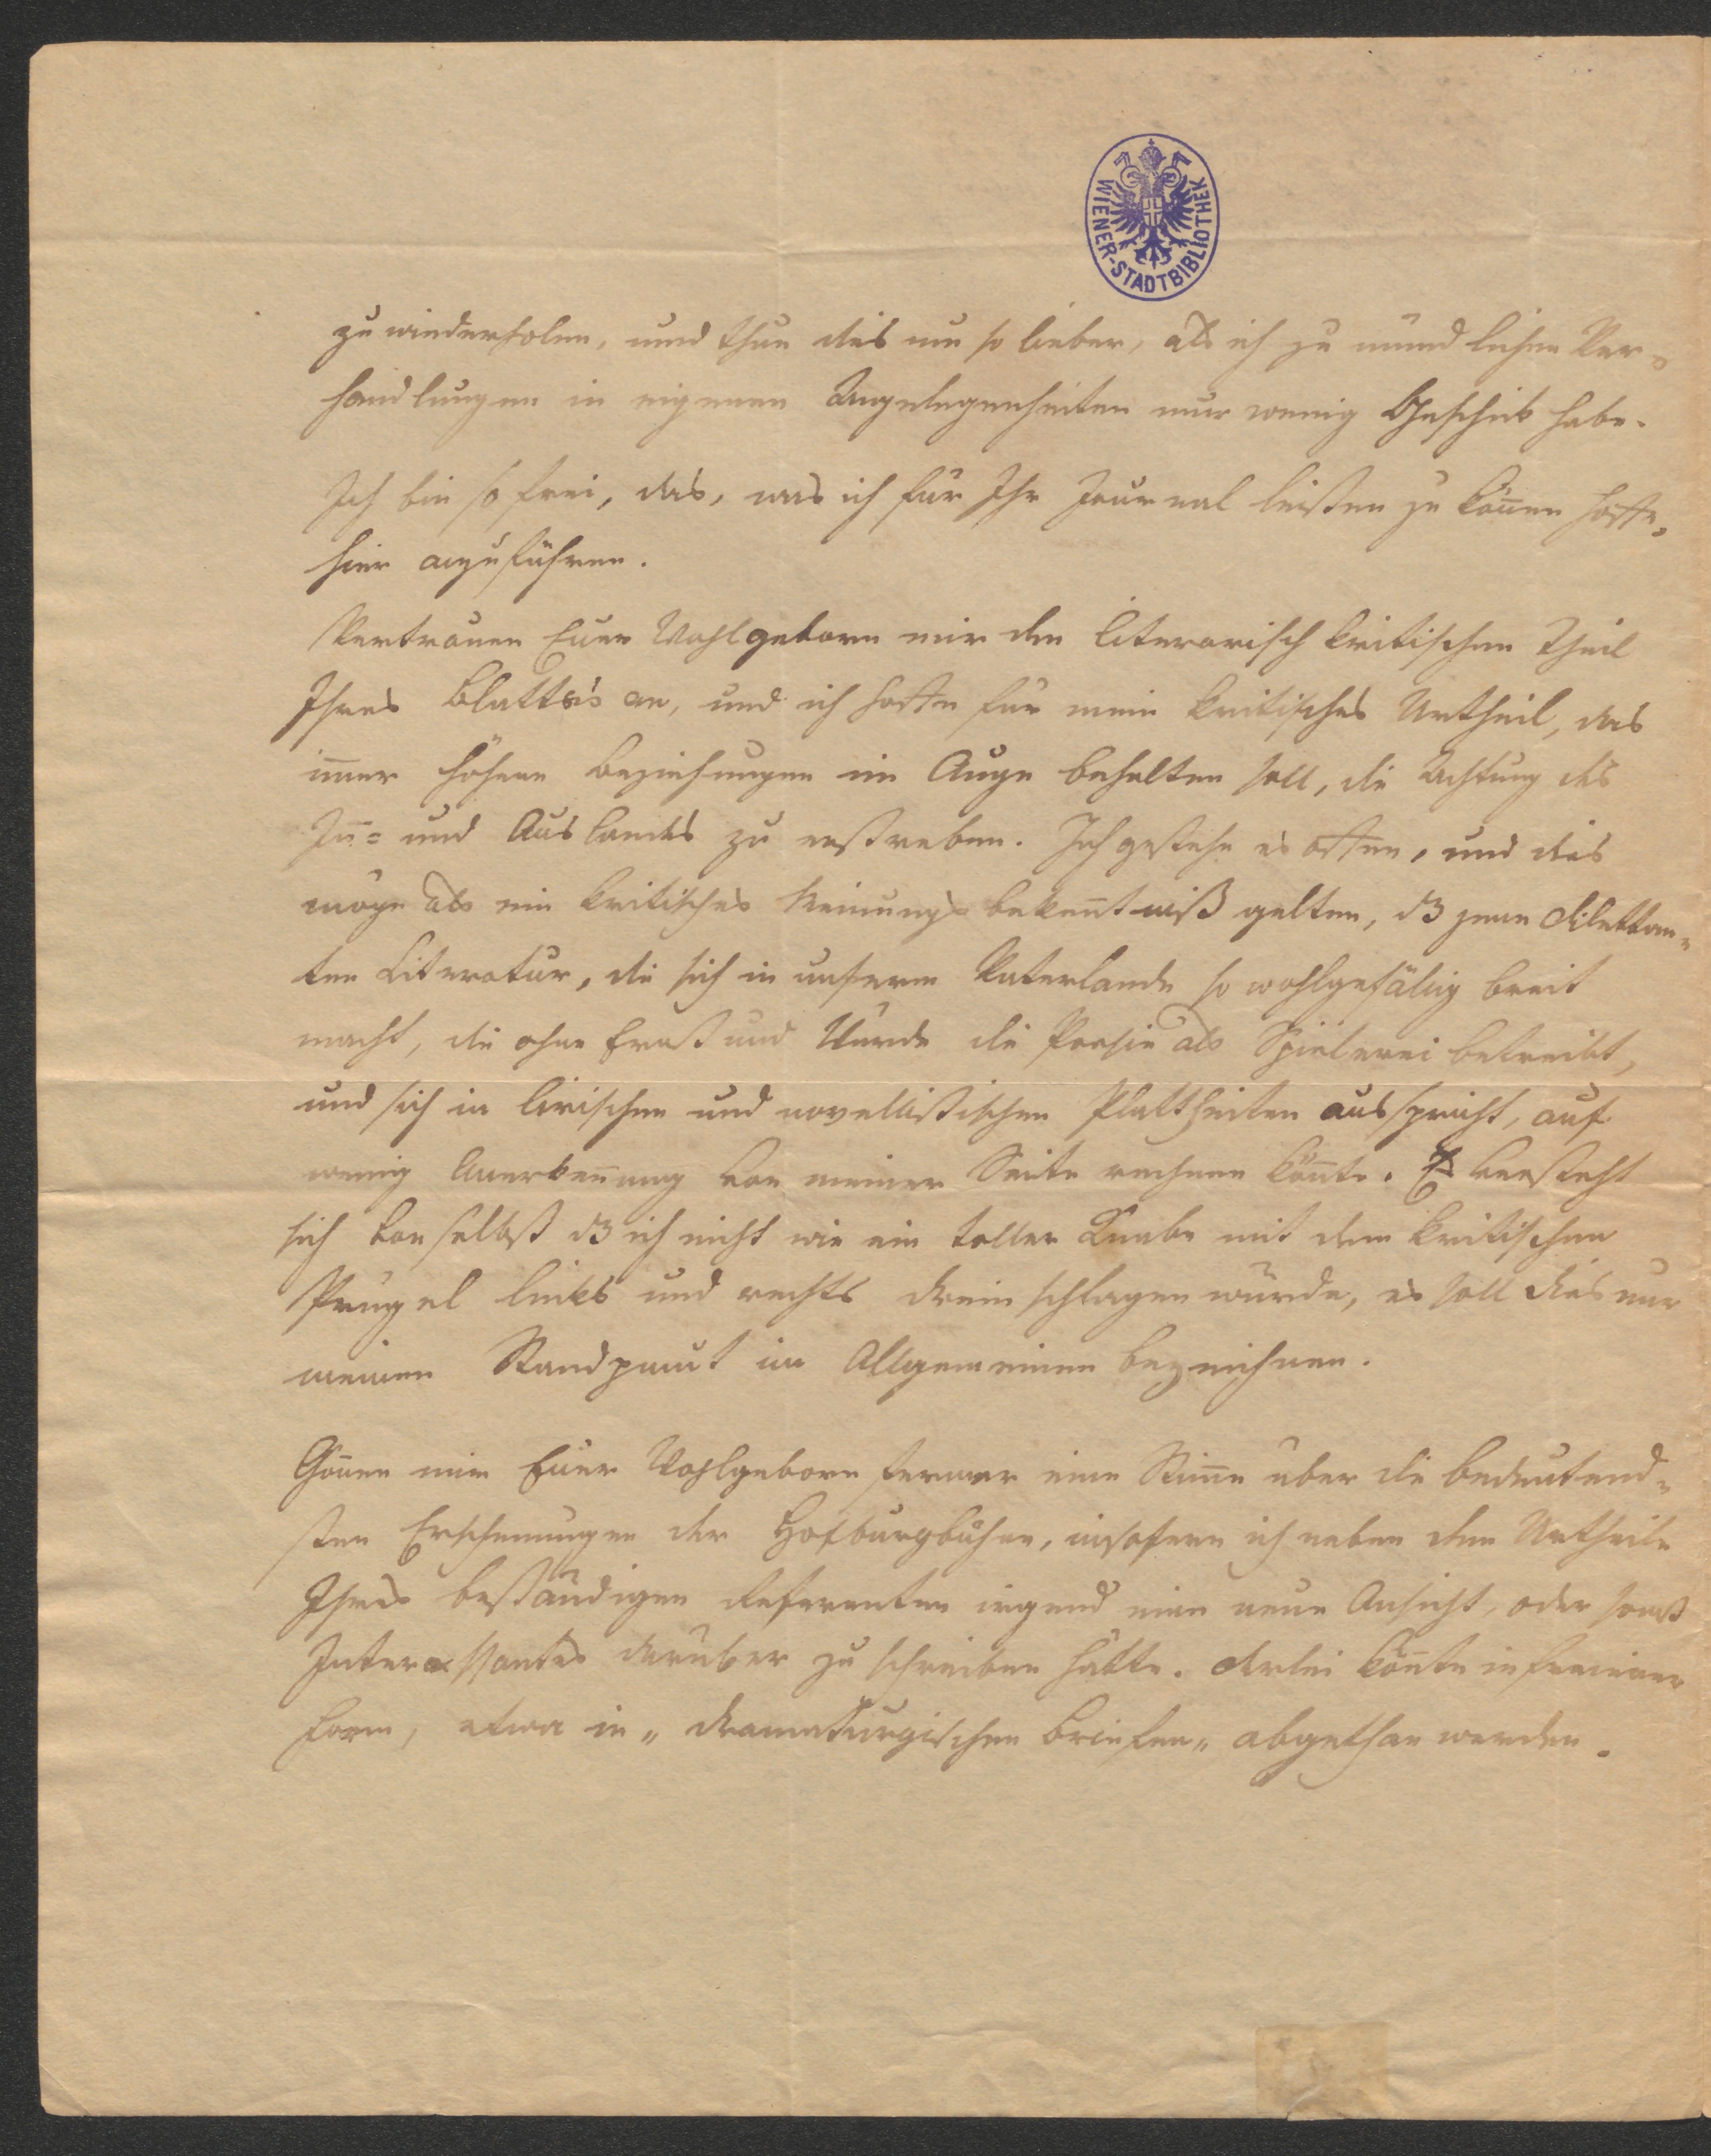 WIENER-STADTBIBLIOTHEK
zu wiederholen, und thue dieß um so lieber, als ich zu mündlichen Ver-
handlungen in eigenen Angelegenheiten nur wenig Geschick habe.
Ich bin so frei, das, was ich für Ihr Journal leisten zu könen hoffe,
hier anzuführen.
Vertrauen Euer Wohlgeborn mir den literarisch kritischen Theil
Ihres Blattes an, und ich hoffe für mein kritisches Urtheil, das
im̅er höhere Beziehungen im Auge behalten soll, die Achtung des
In̅= und Auslandes zu erstreben. Ich gestehe es offen, und dies
möge als ein kritisches Meinungsbeken̅tniß gelten, dß jene Dilettan-
ten Literatur, die sich in unserm Vaterlande so wohlgefällig breit
macht, die ohne Ernst und Würde die Poesie als Spielerei betreibt,
und sich in lirischen und novellistischen Plattheiten ausspricht, auf
wenig Anerken̅ung von meiner Seite rechnen kön̅te. Es versteht
sich von selbst dß ich nicht wie ein toller Knabe mit dem kritischen
Prügel links und rechts drein schlagen würde, es soll dies nur
meinen Standpunct im Allgemeinen bezeichnen.
Gön̅en mir Euer Wohlgeborn ferner eine Stim̅e über die bedeutend-
sten Erscheinungen der Hofburgbühne, insofern ich neben dem Urtheile
Ihres beständigen Referenten irgend eine neue Ansicht, oder sonst
Interessantes darüber zu schreiben hätte. Derlei kön̅te in freierer
Form, etwa in „dramaturgischen Briefen„ abgethan werden.